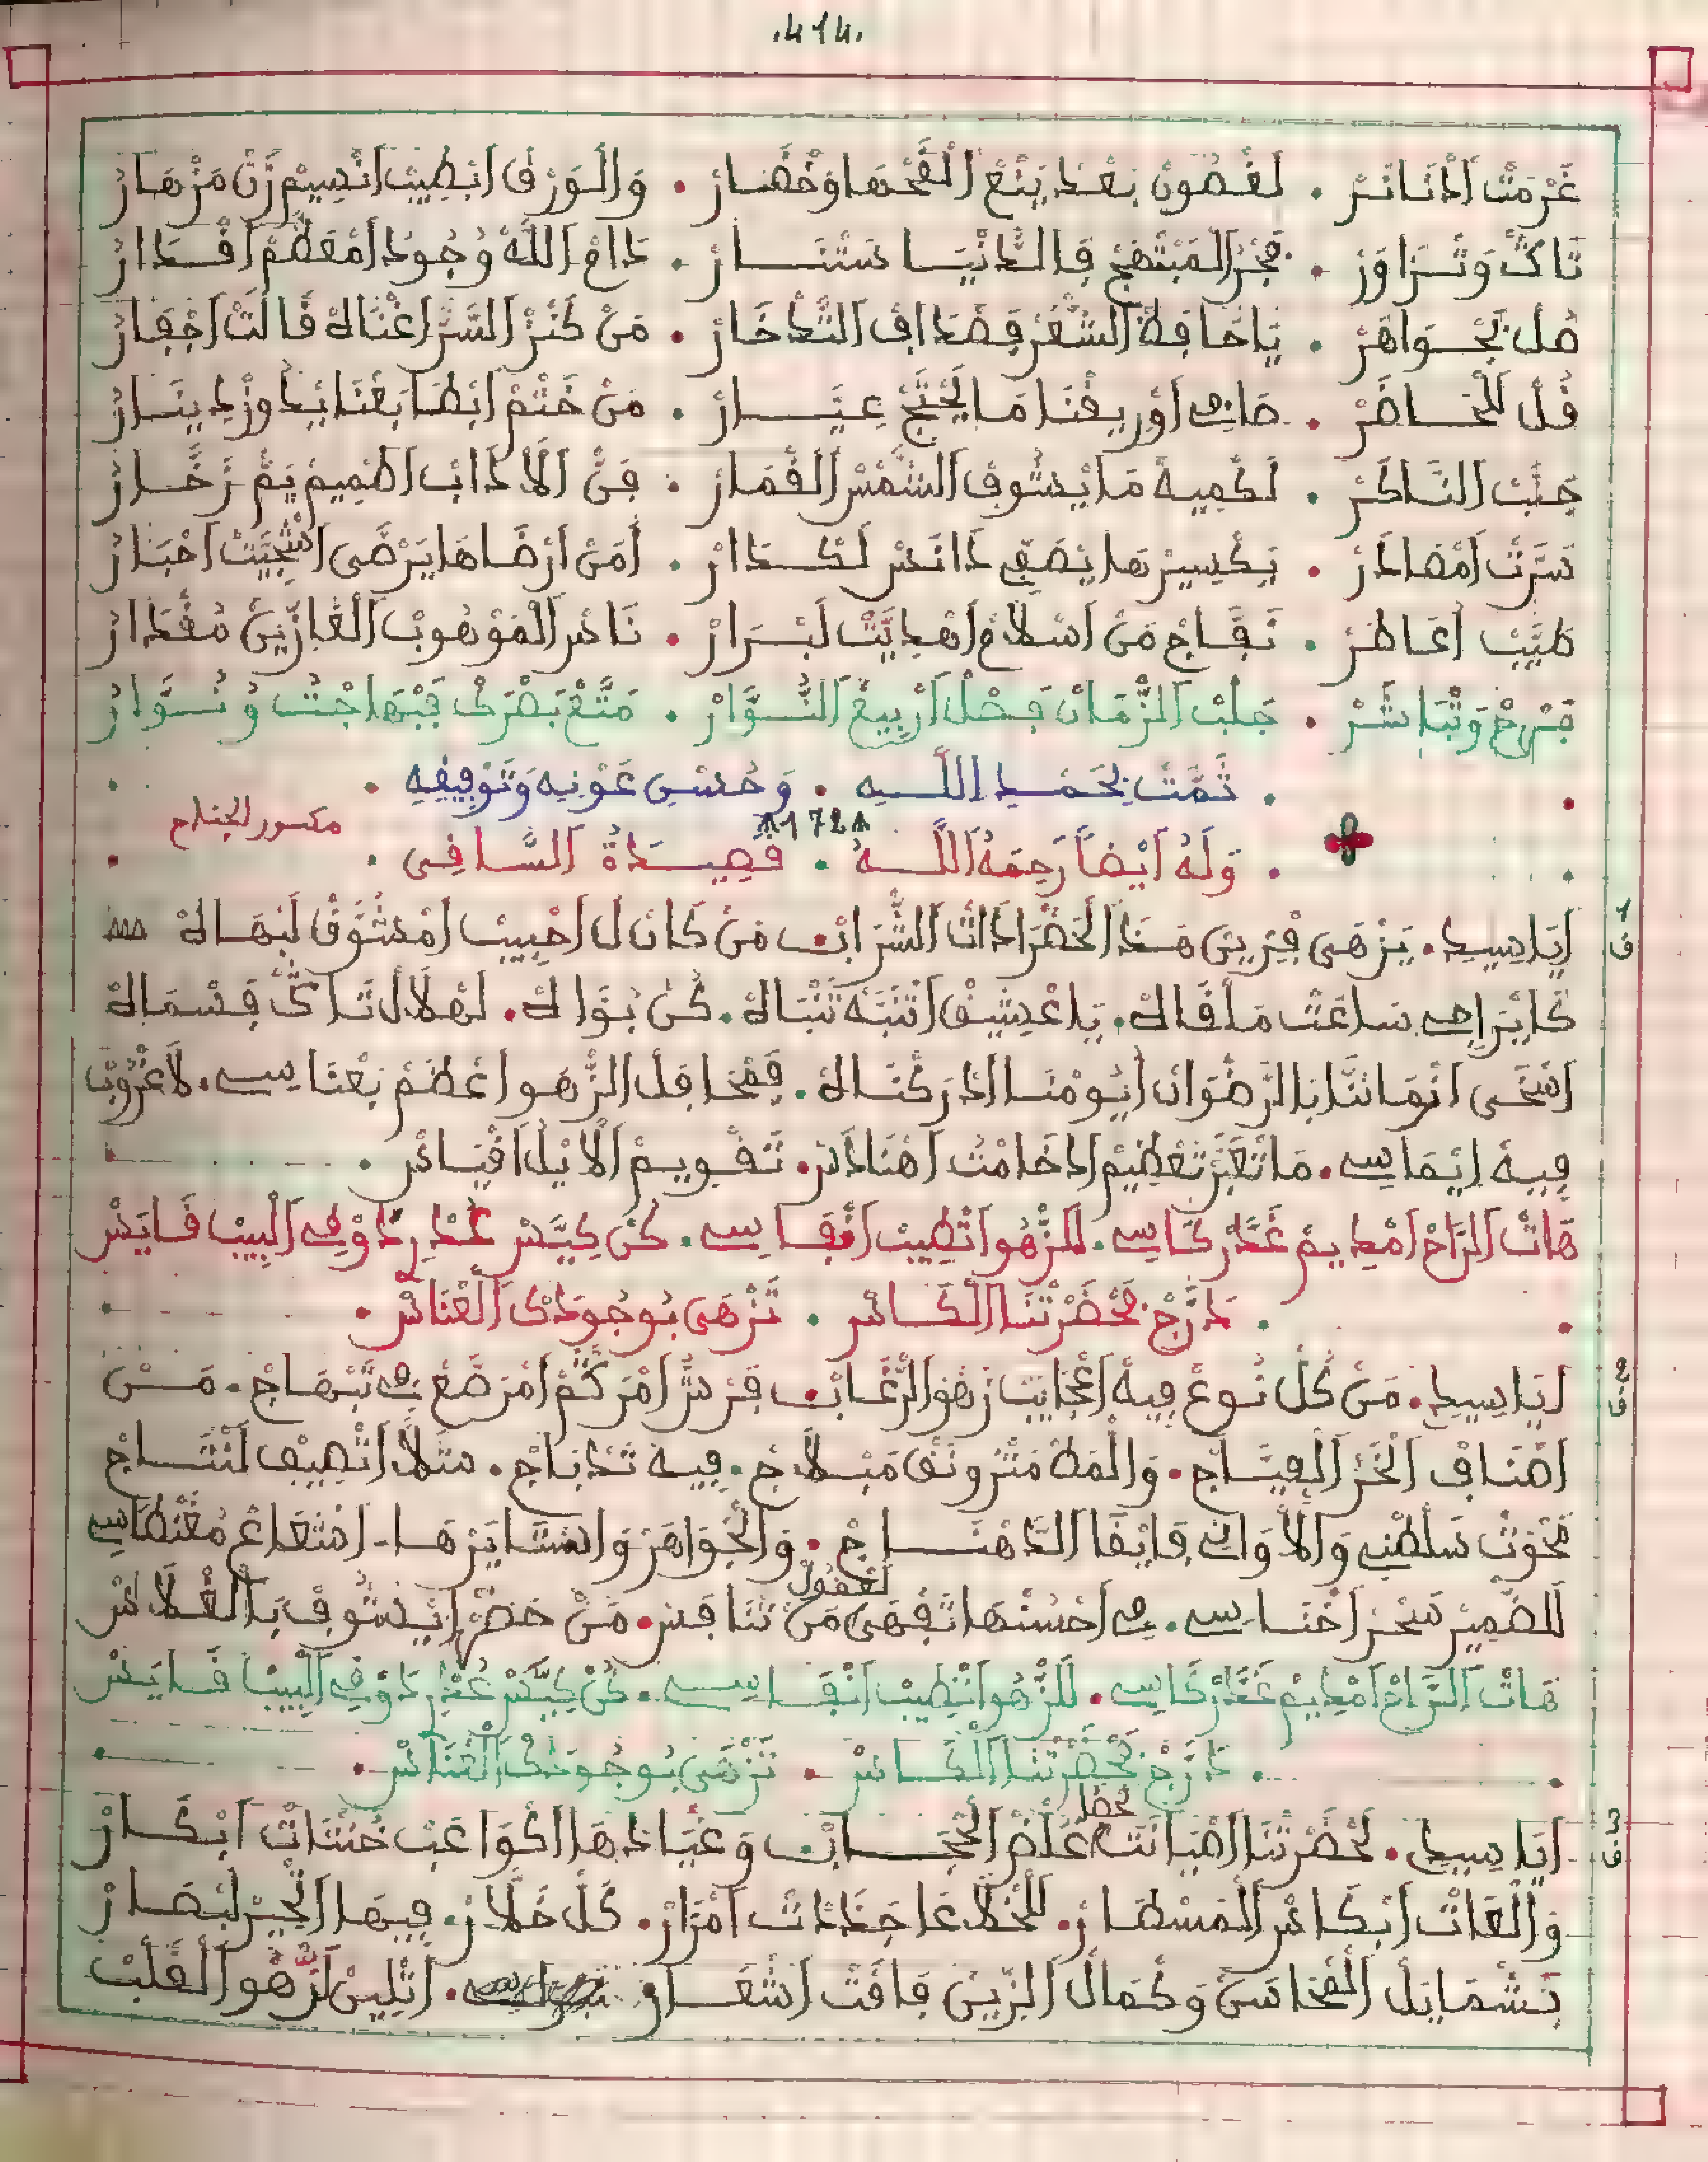 .414.
غَرْمَتْ اَدْنَانَرْ . لَغْصُونْ بَعْدْ يَنْعْ الْقْحْهَا وَخْضَارْ . وَالْوَرْقْ اَبْطِيبْ اَنْسِيمْ زَنْ مَزْهَارْ
تَاكْ وَتْزَاوَرْ . فَجْرْ الْمَبْتَهَجْ فَالدَّنْيَا سَتْنَارْ . دَامْ اللَّهْ وُجُودْ اَمْعَظَّمْ اَقْدَارْ
صْلْ بَجْوَاهَرْ . يَا حَافِظْ الشّْعَرْ فَصْدَافْ التَّدْخَارْ . مَنْ كَنْزْ السَّرْ اَغْنَاكْ قَالَتْ اَجْفَارْ
قُلْ لَلْحَاضَرْ . صَافِي اَوْرِيقْنَا مَا يَحْتَجْ عِيَارْ . مَنْ خَتْمْ اَبْطَابَعْنَا يَدْ اوزْ دِينَارْ
جَلْبْ النَّاكَرْ . لَكْمِيهْ مَا يْشُوفْ الشَّمْسْ الَقْمَارْ . فَنْ اَلَادَابْ اَطْمِيمْ يَمْ زَخَّارْ
سَرَّتْ اَمْصَادَرْ . بَكْسِيرْهَا يْصَفِي دَانَسْ لَكْدَارْ . اَمَنْ اَرْضَاهَا يَرْضَى اسْجِيَّتْ اَحْبَارْ
طَيَّبْ اَعَاطَرْ . نَفَّاجْ مَنْ اَسْلَامْ اَهْدِيَّتْ لَبْرَارْ . نَاسْ الْمَوْهُوبْ الْفَايْزِينْ مُقْدَارْ
فَرْحْ وَتْبَاشَرْ . جَلْبْ الزّْمَانْ فَحْلْ اَرْبِيعْ النُّوَّارْ . مَتَّعْ بَصْرَكْ فَبْهَا جْنُتْ وُنُوَّارْ
. تَمَّتْ بِحَمْدِ اللَّهِ . وَحُسْنِ عَوْنِهِ وَتَوْفِيقِهِ .
172
مكسور الجناح
. وَلَهُ اَيْضاً رَحِمَهُ اللَّهُ . قَصِيدَةُ السَّاقِي .
1 ف اَيَا سِيدِي . يَزْهَى فْرِيقْ هَذْ الْحَضْرَا دَاتْ الشّْرَابْ مَنْ كَانْ لَ اَحْبِيبْ اَمْشُوَّقْ لَبْهَاكْ
كَا يْرَاجِي سَاعَتْ مَلْقَاكْ . يَا عْشِيقْ اَنْتَبَهْ تَنْبَاكْ . كُنْ بُوَّاكْ . لَهْلَالْ تَاكْ فَسْمَاكْ
اَسْخَى اَزْمَانَّا بَالرَّضْوَانْ اَيُومْنَا ادْرَكْنَاكْ . فَمْحَافَلْ الزّْهُو اَعْظَمْ بَعْنَاسِي . لَاغْرُوبْ
فِيهْ اِيْمَاسِي . مَا تْعَبَّرْ تَعْظِيمْ اِدْخَامْتْ اَهْنَادَسْ . تَقْوِيمْ اَلَايْلْ اَقْيَاسْ .
هَاتْ الرَّاحْ اَمْدِيمْ عَمَّرْ كَاسِي . لَلزّْهُو اَتْطِيبْ اَنْفَاسِي . كُنْ كِيَّسْ عَنْدْ دَوْقِي الْبِيبْ فَايَسْ
. دَرَّجْ فَحْضَرْتْنَا الْكَاسْ . تَزْهَى بُوجُودَكْ الَعْنَاسْ .
2 ف اَيَا سِيدِي . مَنْ كُلْ نُوعْ فِيهْ اَعْجَايَبْ زَهْو الرّْغَابْ فَرْشْ اَمْرَكَّمْ اَمْرَصَّعْ فِي تَبْهَاجْ . مَنْ
اَصْنَافْ الْخَزْ الْفِيَّاجْ . وَالْمَطْ مَتْرُونَقْ مَبْلَاجْ . فِيهْ تَدْبَاجْ . مَتْلًا اَنْصِيفْ لَنْتَاجْ
نَحْوَتْ سَلْطْنِي وَالْاَوَانِي فَايْقَا الدَّهْنَاجْ . وَالْجَوَاهَرْ وَالسْتَايَرْهَا . اَسْتَعَامْ مُغْنَطَاسِي
لَعْقُولْ
لَلضَّمِيرْ سَحْرْ اَخْنَاسِي . فِي اَحْسَنْهَا تَفْهَى مَنْ تَنَافَسْ . مَنْ حَضْرْ اِيْشُوفْ بَالَغْلَاسْ
هَاتْ الرَّاحْ اَمْدِيمْ عَمَّرْ كَاسِي . لَلزّْهُو اَتْطِيبْ اَنْفَاسِي . كُنْ كِيَّسْ عَنْدْ دَوْقِي الْبِيبْ فَايَسْ
. دَرَّجْ فَحْضَرْتْنَا الْكَاسْ . تَزْهَى بُوجُودَكْ الَعْنَاسْ .
3 ف اَيَا سِيدِي . لَحْضَرْتْنَا اَصْبَانَتْ عُلْضْ الَحْجَابْ وَغْيَادْهَا الْكْوَاعَبْ خُنْتَاتْ اَبْكَارْ
وَالْغَاتْ اَبْكَاسْ الْمَسْطَارْ . لَلْخْلَاعَا جَدَّاتْ اَمْزَارْ . كُلْ خَلَّارْ . فِيهَا اَلْجِيرْ لَبْصَارْ
بَشْمَايَلْ الَمْحَاسَنْ وَكْمَالْ الزِّينْ فَاقَتْ اَشْعَارْ . اَتْلِينْ لَزّْهُو الْقَلْبْ